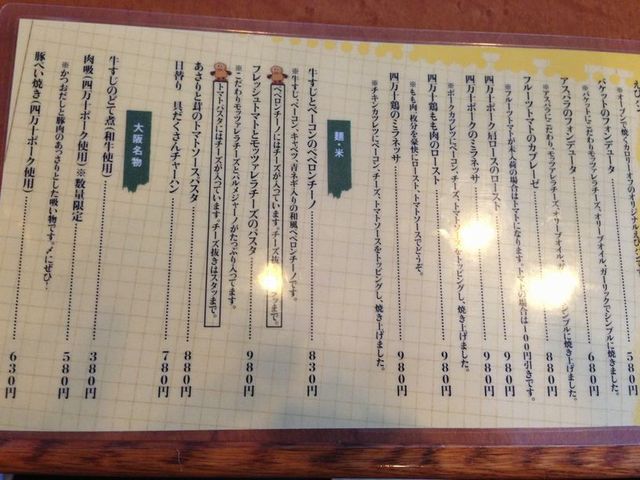 ※オーブンで焼くカロリーオフの
580円
バケットのフォンデュータ
※バケットにこだわりモッツァレラチーズ、オリーブオイル、ガーリックでシンプルに焼きました。
680円
アスパラのフォンデュータ
※アスパラにこだわり、モッツァレラチーズ、オリーブオイル、ガーリックでシンプルに焼き上げました。
880円
フルーツトマトのカプレーゼ
980円
※フルーツトマトが未入荷の場合はトマトになります。トマトの場合は100円引きです。
四万十ポーク肩ロースのロースト
980円
四万十ポークのミラネッサ
980円
※ポークカツレツにベーコン、チーズ、トマトソースをトッピングし、焼き上げました。
四万十鶏もも肉のロースト
980円
※もも肉一枚分を豪快にロースト、トマトソースでどうぞ。
四万十鶏のミラネッサ
980円
※チキンカツレツにベーコン、チーズ、トマトソースをトッピングし、焼き上げました。
麺・米
牛すじとベーコンのペペロンチーノ
830円
※牛すじ、ベーコン、キャベツ、青ネギ入りの和風ペペロンチーノです。
ペペロンチーノにはチーズが入っています。チーズ抜きはスタッフまで。
フレッシュトマトとモッツァレラチーズのパスタ
980円
※こだわりモッツァレラチーズとパルメジャーノがたっぷり入ってます。
トマトパスタにはチーズが入っています。チーズ抜きはスタッフまで。
あさりと茸のトマトソースパスタ
880円
日替り 具だくさんチャーハン
780円
大阪名物
牛すじのどて煮(和牛使用)
380円
肉吸(四万十ポーク使用)※数量限定
580円
※かつおだしと豚肉のあっさりとした吸い物です。〆にぜひ…
豚ぺい焼き(四万十ポーク使用)
630円